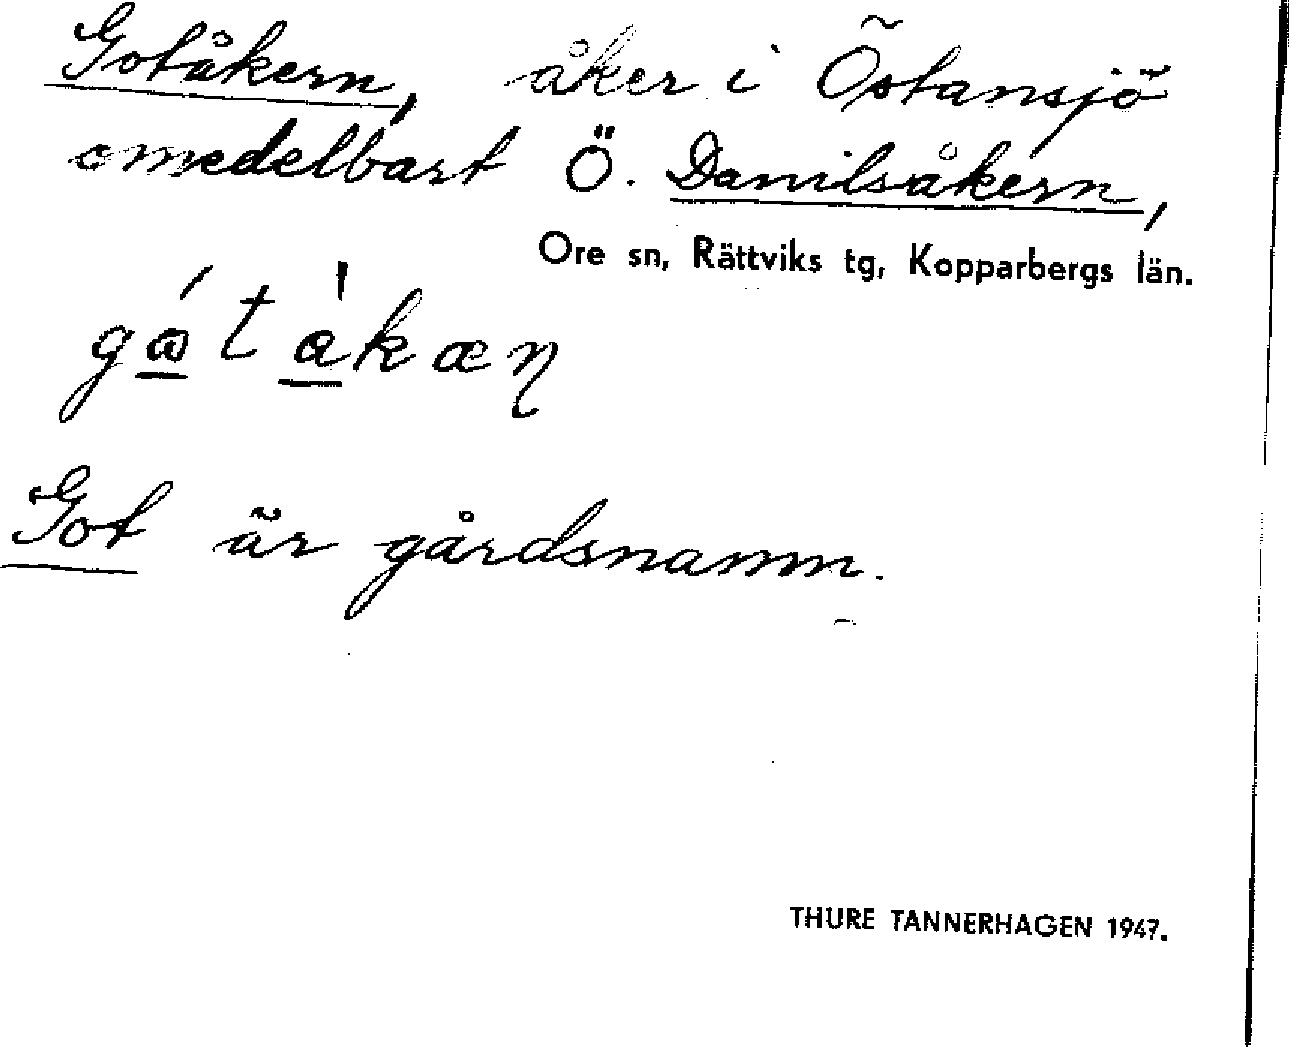 Gotåkern, åker i Östansjö
omedelbart Ö. Danilsåkern,
Ore sn, Rättviks tg, Kopparbergs län.
Got är gårdsnamn.
THURE TANNERHAGEN 1947.